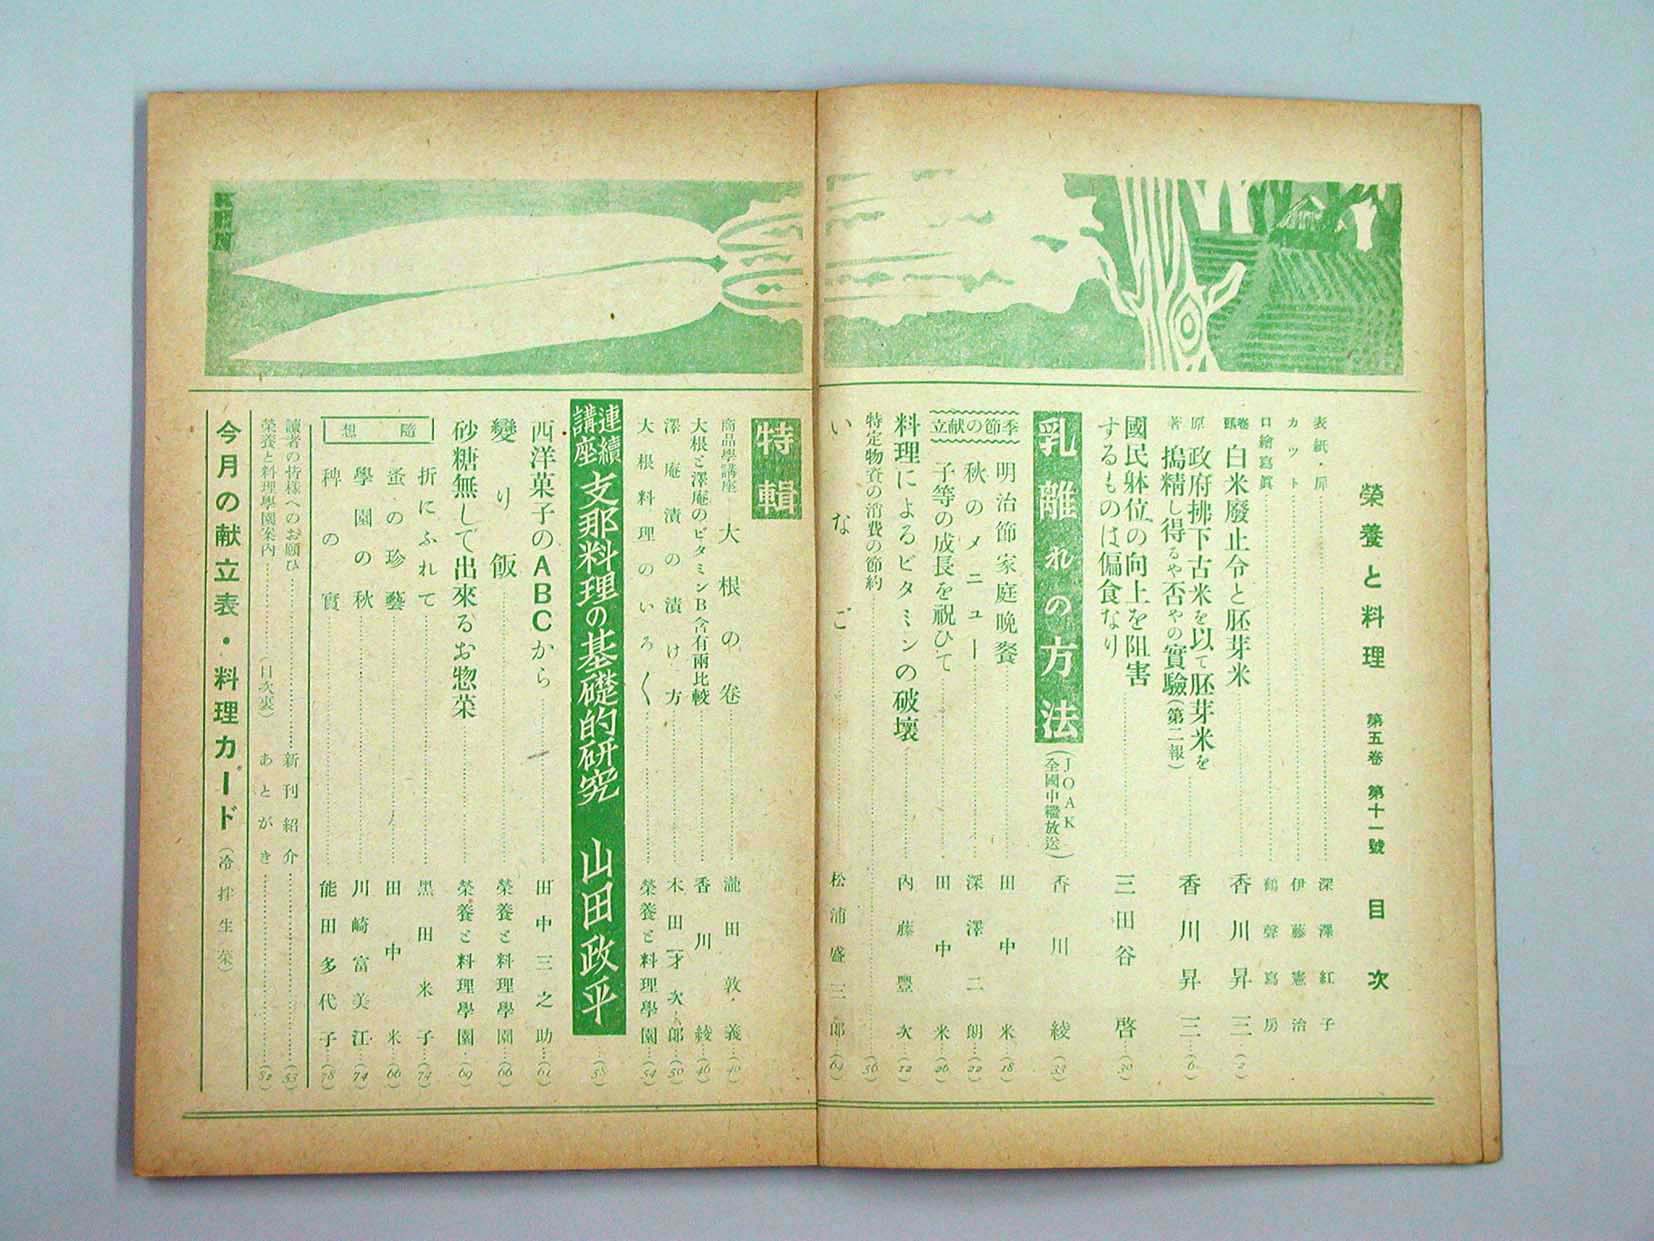 榮養と料理 第五卷 第十一號 目次
表紙・扉 深澤紅子
カット 伊藤憲治
口繪寫眞 鶴聲寫房
卷頭 白米廢止令と胚芽米 香川昇三 (2)
原著 政府拂下古米を以て胚芽米を
搗精し得るや否やの實驗(第二報) 香川昇三 (6)
國民躰位の向上を阻害
するものは偏食なり 三田谷啓 (30)
乳離れの方法 (JOAK全國中繼放送) 香川綾 (33)
季節の献立
明治節家庭晩餐 田中米 (18)
秋のメニュー 深澤二朗 (22)
子等の成長を祝ひて 田中米 (26)
料理によるビタミンの破壞 內藤豐次 (12)
特定物資の消費の節約 (56)
いなご 松浦盛三郎 (64)
特輯
商品學講座 大根の卷 瀧田敦義 (40)
大根と澤庵のビタミンB含有兩比較 香川綾 (46)
澤庵漬の漬け方 木田一才次郎 (50)
大根料理のいろ〱 榮養と料理學園 (54)
連續講座 支那料理の基礎的研究 山田政平 (58)
西洋菓子のABCから 田中三之助 (61)
變り飯 榮養と料理學園 (66)
砂糖無しで出來るお惣菜 榮養と料理學園 (69)
隨想
折にふれて 黑田米子 (74)
蚤の珍藝 田中米 (66)
學園の秋 川崎富美江 (74)
稗の實 能田多代子 (78)
讀者の皆樣へのお願ひ 新刊紹介 (53)
榮養と料理學園案內 (目次裏) あとがき (82)
今月の献立表・料理カード (冷拌生菜)